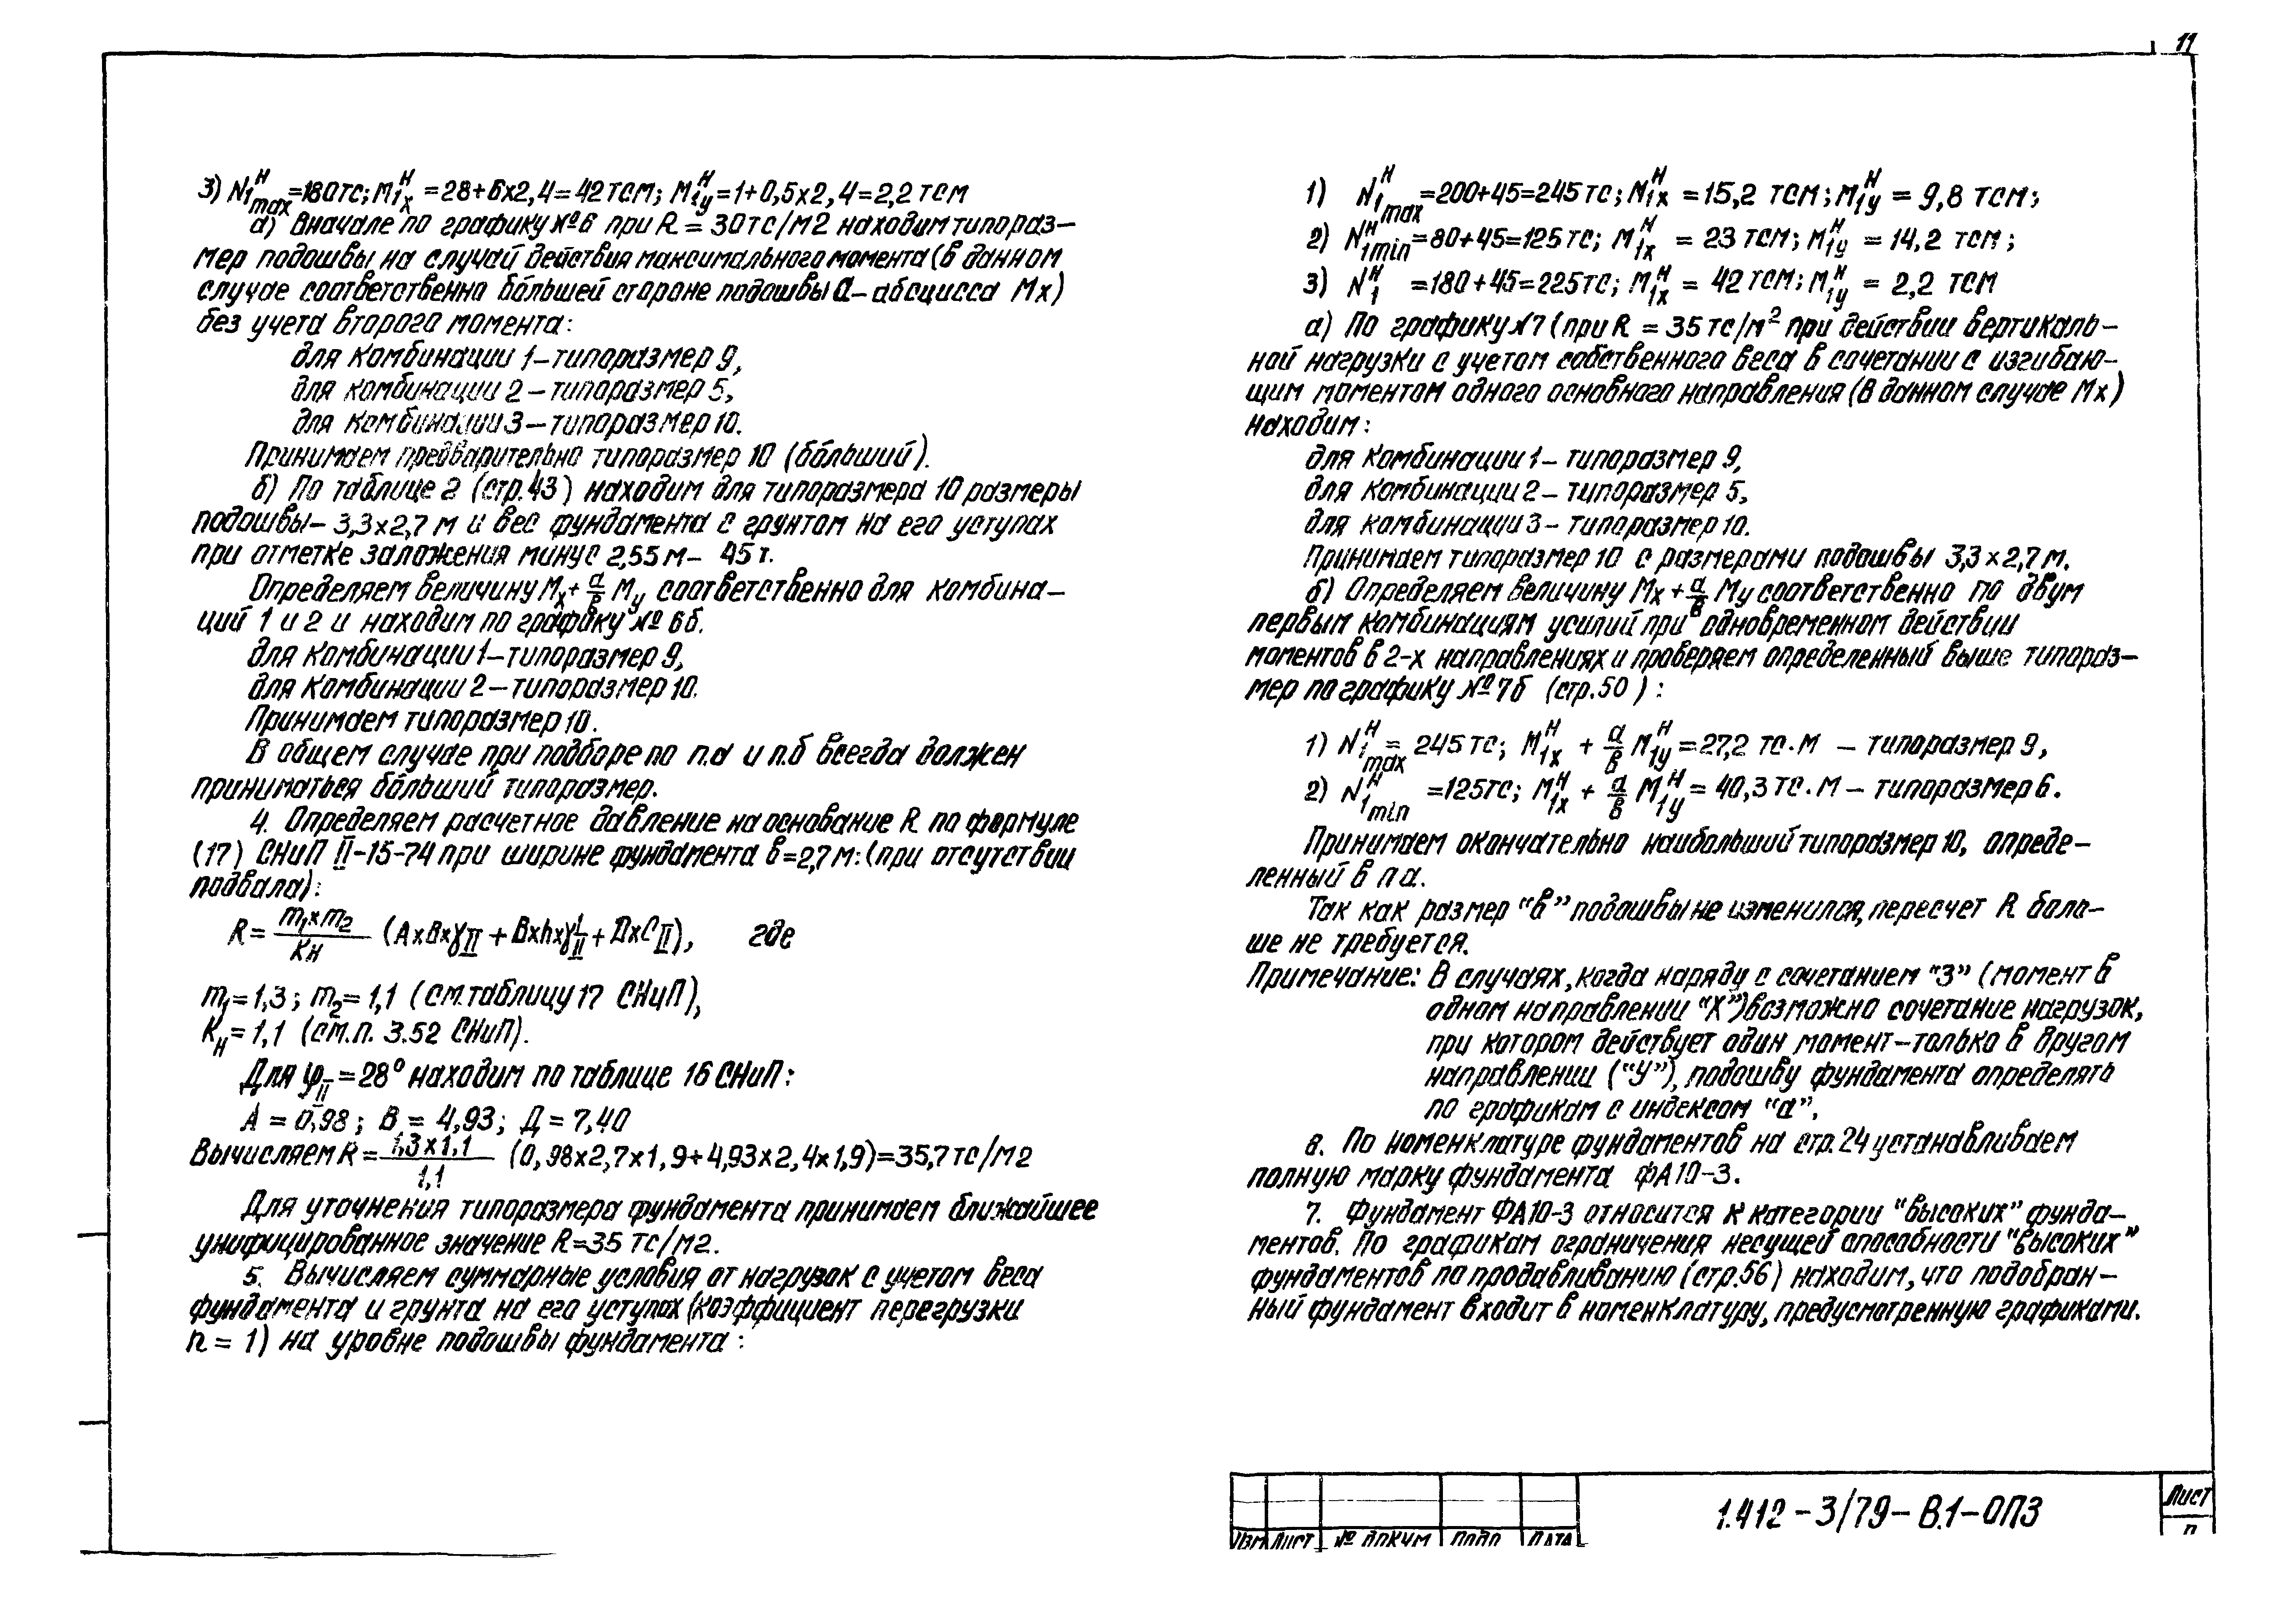 11
3) N₁ᴴmax=180тс; M₁ₓᴴ=28+6х2,4=42тсм; M₁уᴴ=1+0,5х2,4=2,2 тсм
а) Вначале по графику №6 при R = 30тс/м2 находим типораз-
мер подошвы на случай действия максимального момента (в данном
случае соответственно бо́льшей стороне подошвы а - абсцисса Мх)
без учета второго момента:
для комбинации 1-типоразмер 9,
для комбинации 2-типоразмер 5,
для комбинации 3-типоразмер 10.
Принимаем предварительно типоразмер 10 (бо́льший).
б) По таблице 2 (стр.43) находим для типоразмера 10 размеры
подошвы- 3,3×2,7 м и вес фундамента с грунтом на его уступах
при отметке заложения минус 2,55м- 45 т.
Определяем величину Мх+ а/в Му соответственно для комбина-
ций 1 и 2 и находим по графику № 6б.
для комбинации 1-типоразмер 9,
для комбинации 2-типоразмер 10.
Принимаем типоразмер 10.
В общем случае при подборе по п.а и п.б всегда должен
приниматься бо́льший типоразмер.
4. Определяем расчетное давление на основание R по формуле
(17) СНиП II-15-74 при ширине фундамента в=2,7м: (при отсутствии
подвала):
R= m₁×m₂/Kн (А×В×γII + В×h×γ'II + Д×CII), где
m₁=1,3; m₂=1,1 (см.таблицу 17 СНиП),
Kн=1,1 (см.п. 3.52 СНиП).
Для φII=28° находим по таблице 16 СНиП:
А = 0,98; В = 4,93; Д = 7,40
Вычисляем R= 1,3×1,1/1,1 (0,98×2,7×1,9+4,93×2,4×1,9)=35,7тс/м2
Для уточнения типоразмера фундамента принимаем ближайшее
унифицированное значение R=35 тс/м2.
5. Вычисляем суммарные условия от нагрузок с учетом веса
фундамента и грунта на его уступах (коэффициент перегрузки
n = 1) на уровне подошвы фундамента:
1) N₁ᴴmax=200+45=245тс; М₁ₓᴴ=15,2 тсм; М₁уᴴ= 9,8 тсм;
2) N₁ᴴmin=80+45=125тс; М₁ₓᴴ = 23 тсм; М₁уᴴ = 14,2 тсм;
3) N₁ᴴ =180+45=225тс; М₁ₓᴴ = 42 тсм; М₁уᴴ = 2,2 тсм
а) По графику №7 (при R = 35 тс/м² при действии вертикаль-
ной нагрузки с учетом собственного веса в сочетании с изгибаю-
щим моментом одного основного направления (в данном случае Мх)
находим:
для комбинации 1- типоразмер 9,
для комбинации 2- типоразмер 5,
для комбинации 3- типоразмер 10.
Принимаем типоразмер 10 с размерами подошвы 3,3×2,7м.
б) Определяем величину Мх+ а/в Му соответственно по двум
первым комбинациям усилий при одновременном действии
моментов в 2-х направлениях и проверяем определенный выше типораз-
мер по графику №7б (стр.50):
1) N₁ᴴmax= 245тс; М₁ₓᴴ + а/в М₁уᴴ=27,2 тс·м - типоразмер 9,
2) N₁ᴴmin =125тс; М₁ₓᴴ + а/в М₁уᴴ= 40,3тс·м - типоразмер 6.
Принимаем окончательно наибольший типоразмер 10, опреде-
ленный в п а.
Так как размер "в" подошвы не изменился, пересчет R боль-
ше не требуется.
Примечание: В случаях, когда наряду с сочетанием "3" (момент в
одном направлении "Х") возможно сочетание нагрузок,
при котором действует один момент-только в другом
направлении ("У"), подошву фундамента определять
по графикам с индексом "а".
в. По номенклатуре фундаментов на стр.24 устанавливаем
полную марку фундамента ФА10-3.
7. Фундамент ФА10-3 относится к категории "высоких" фунда-
ментов. По графикам ограничения несущей способности "высоких"
фундаментов по продавливанию (стр.56) находим, что подобран-
ный фундамент входит в номенклатуру, предусмотренную графиками.
Изм Лист № докум Подп Дата
1.412-3/79-В.1-ОПЗ
Лист
п